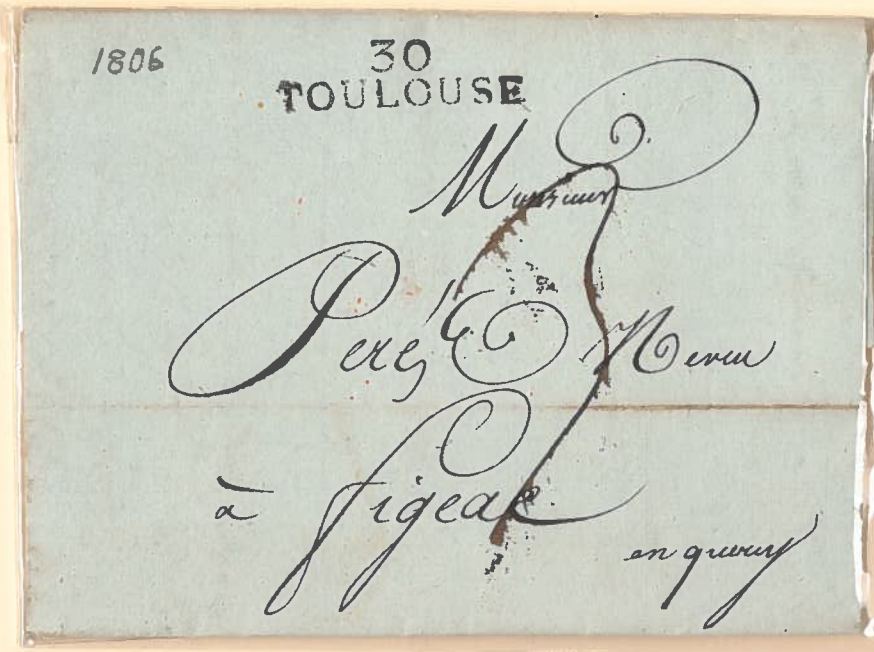 1806
30
TOULOUSE
Monsieur
Peré Neveu
à figeac
en quercy